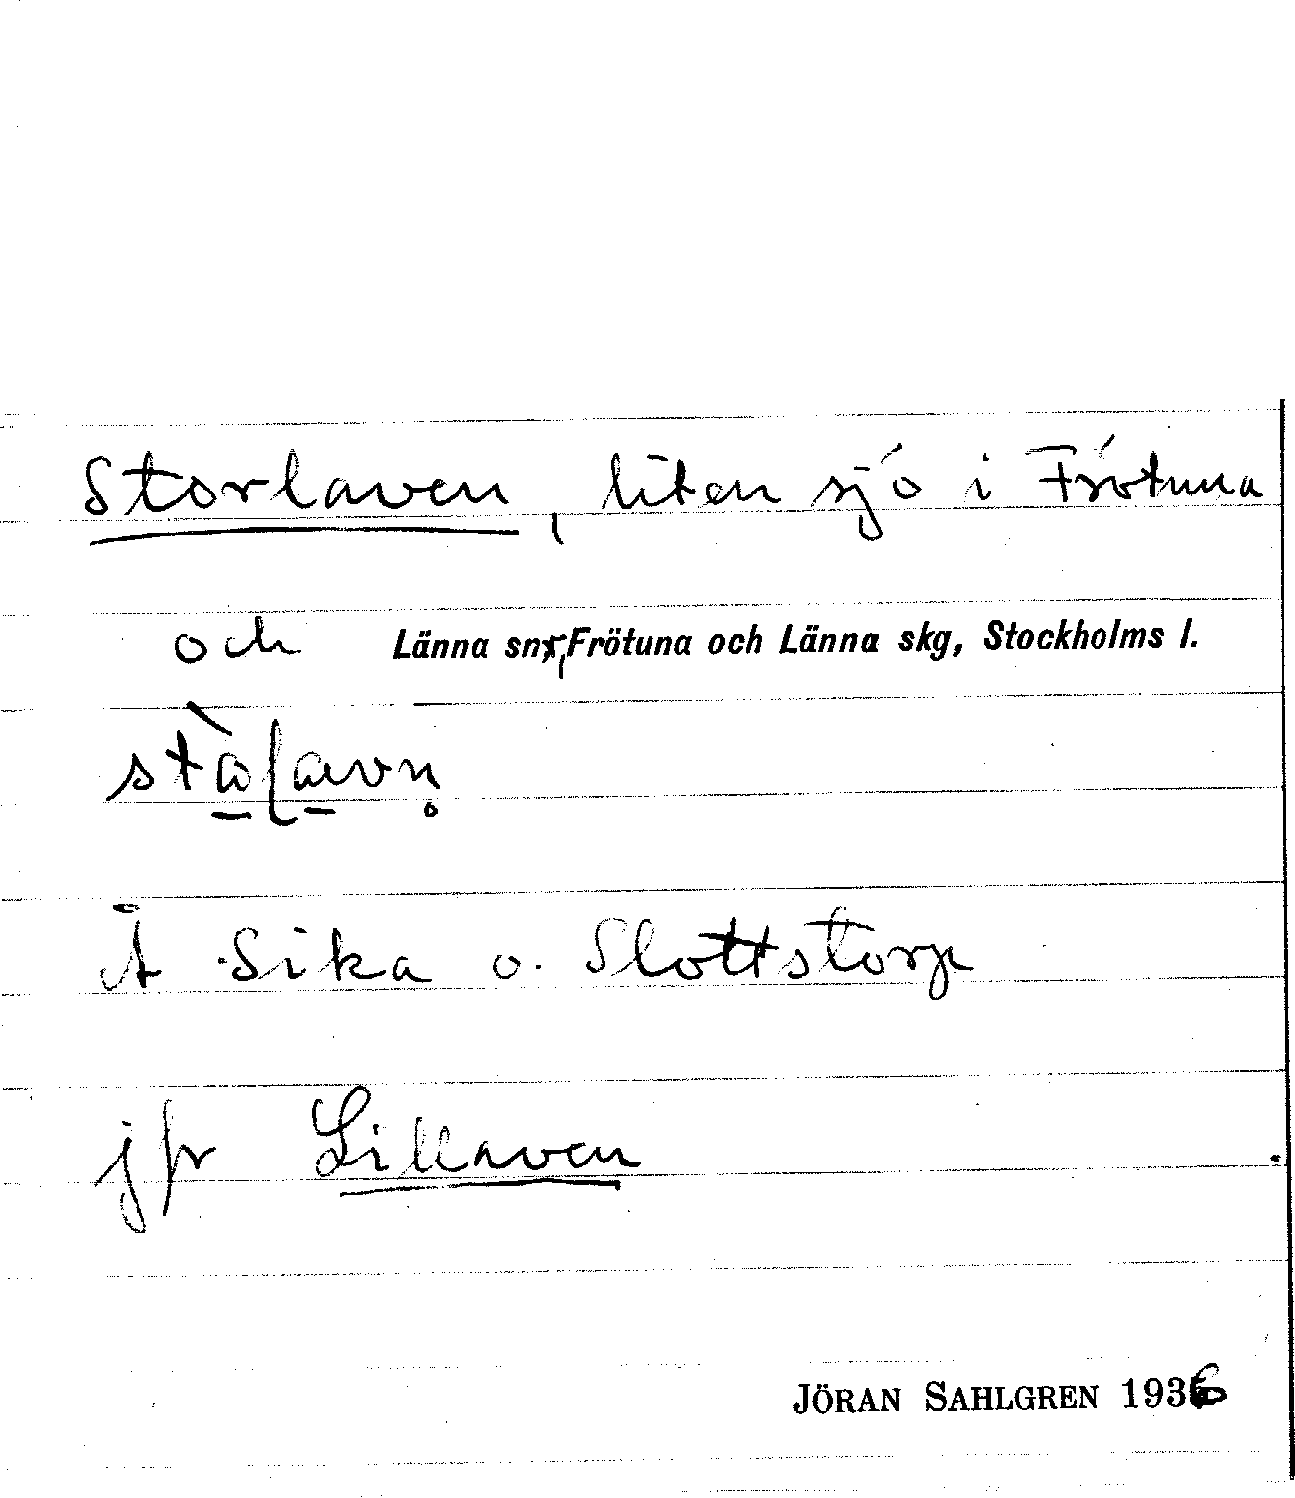 Storlaven, liten sjö i Frötuna
och Länna snr, Frötuna och Länna skg, Stockholms l.
Å Sika o. Slottstorp
jfr Lillaven
JÖRAN SAHLGREN 1936